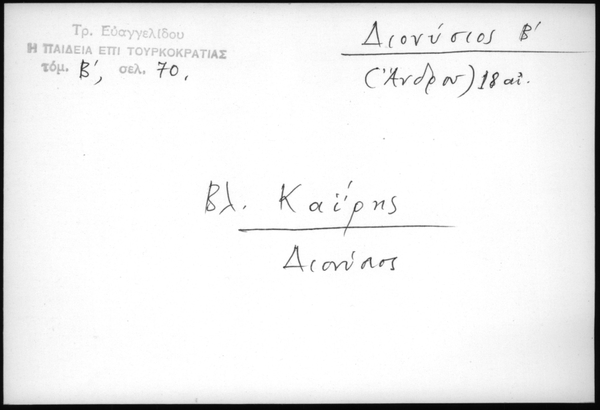 Τρ. Εὐαγγελίδου
Η ΠΑΙΔΕΙΑ ΕΠΙ ΤΟΥΡΚΟΚΡΑΤΙΑΣ
τόμ. Β', σελ. 70.
Διονύσιος Β'
(Ἄνδρου) 18 αἰ.
Βλ. Καΐρης
Διονύσιος